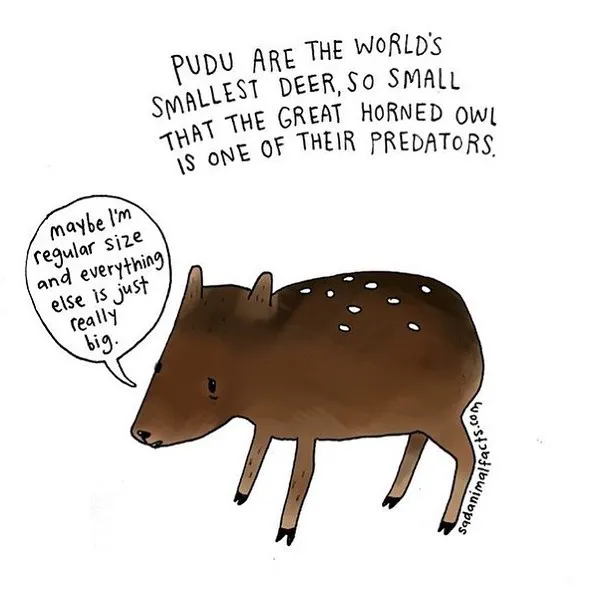 PUDU ARE THE WORLD'S
SMALLEST DEER, SO SMALL
THAT THE GREAT HORNED OWL
IS ONE OF THEIR PREDATORS.
maybe I'm
regular size
and everything
else is just
really
big.
sadanimalfacts.com